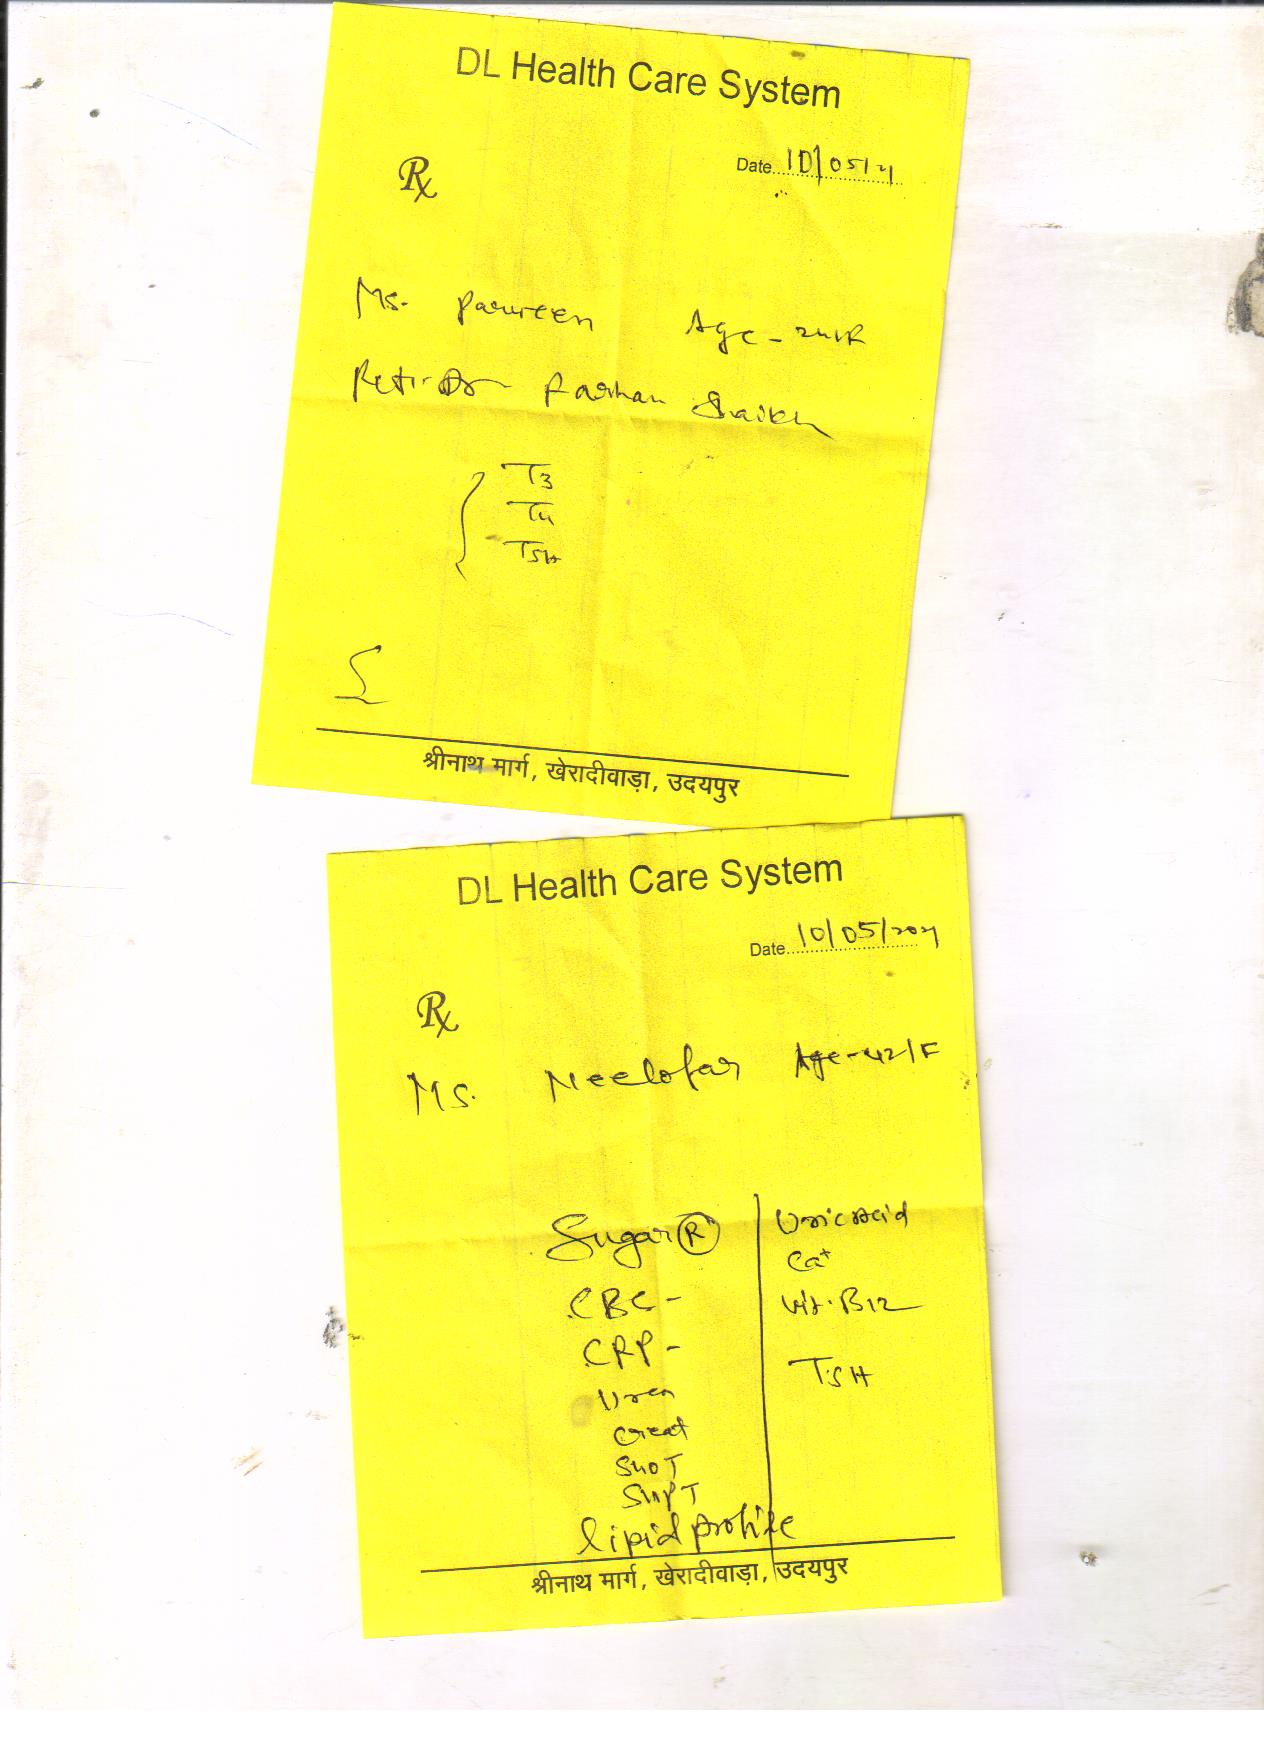 DL Health Care System
Date 10/05/21
Rx
Ms. Parveen Age - 24/F
Ref. Dr Farhan Shaikh
T3
T4
TSH
श्रीनाथ मार्ग, खेरादीवाड़ा, उदयपुर
DL Health Care System
Date 10/05/2021
Rx
Ms. Neelofar Age - 42/F
Sugar (R)
CBC -
CRP -
Urea
Creat
SGOT
SGPT
Lipid profile
Uric acid
Ca+
Vit. B12
TSH
श्रीनाथ मार्ग, खेरादीवाड़ा, उदयपुर